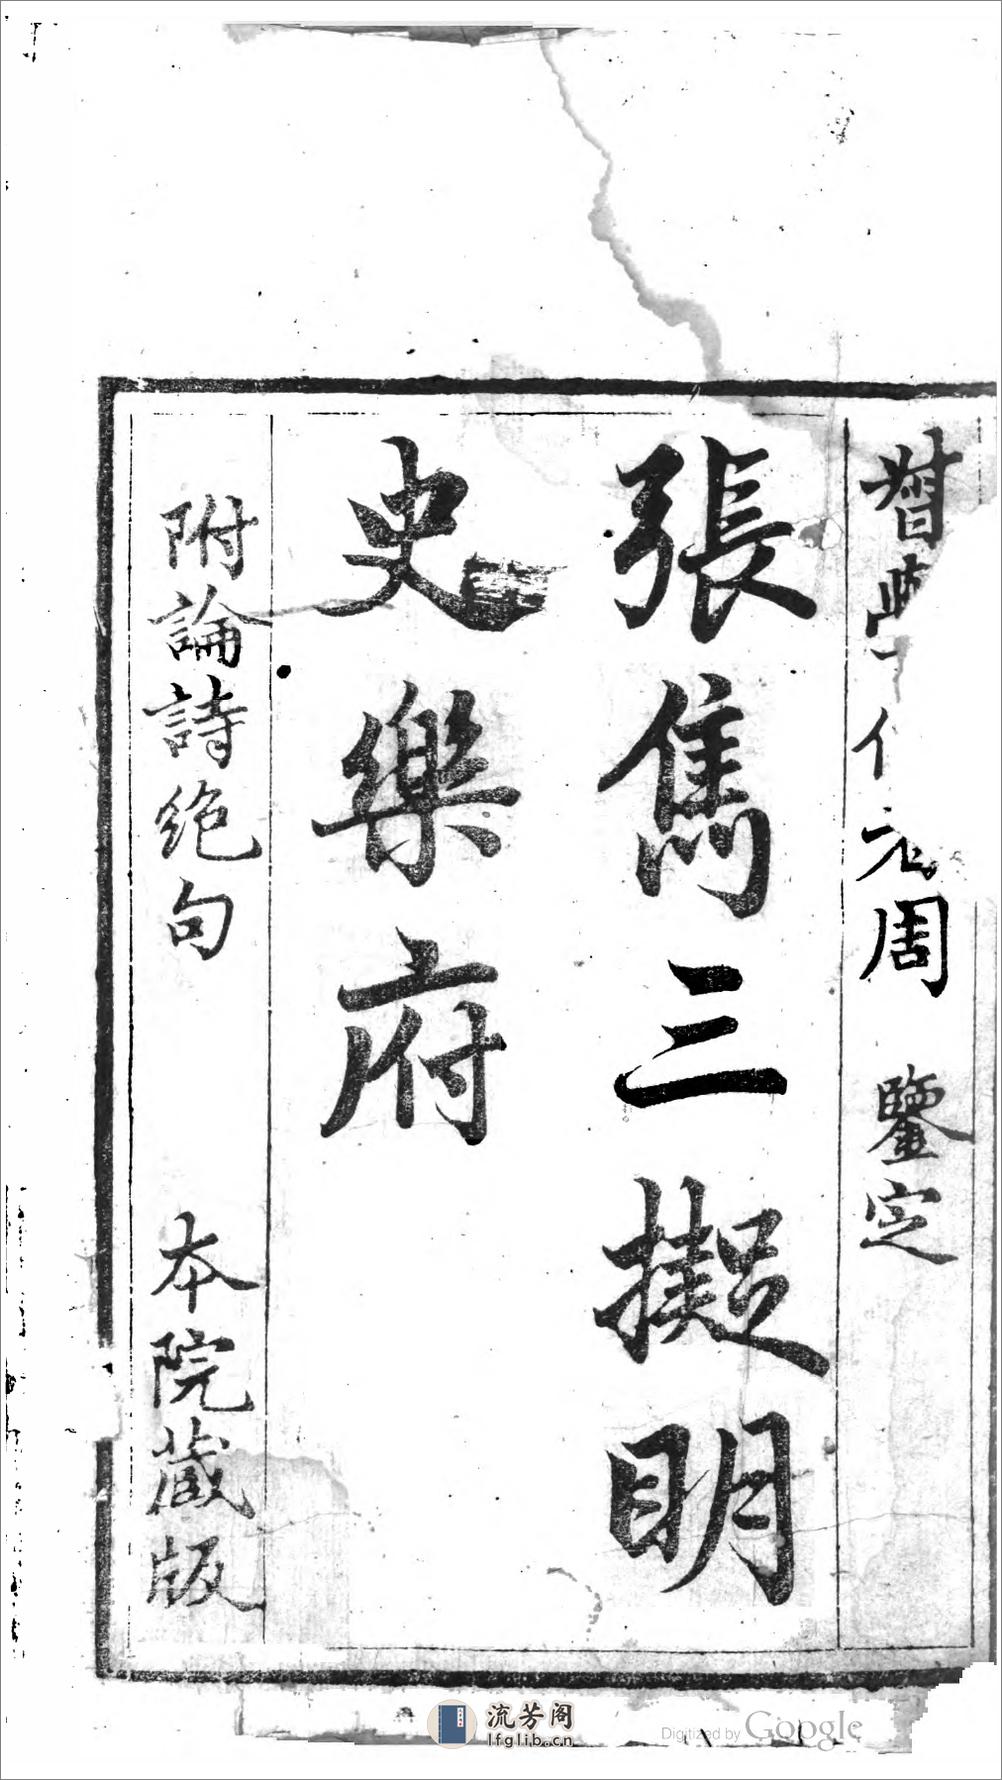 督學仁元周 鑒定
張雋三擬明
史樂府
附論詩絶句 本院藏版
流芳阁
lfglib.cn
Digitized by Google